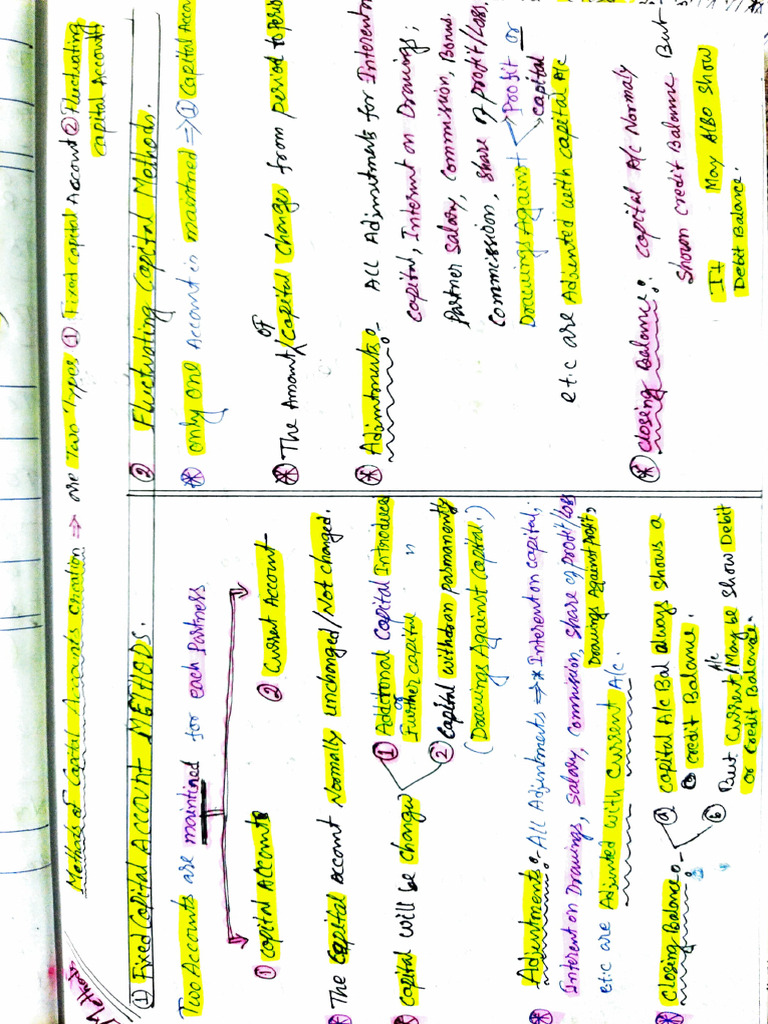 Methods
Methods of Capital Accounts Creation ⇒ are Two Types ① Fixed capital Account ② Fluctuating
capital Account
① Fixed Capital Account METHODS.
Two Accounts are maintined for each partners
① capital Accounts ② Current Account
* The Capital account Normally unchanged/Not changed.
* capital will be change ① Additional Capital Introduce
or Further capital "
② capital withdrawn parmanently
(Drawings Against Capital.)
* Adjustments:- All Adjustments ⇒ * Interest on capital,
Interest on Drawings, salary, commission, share of profit/Loss
Drawings Against profit,
etc are Adjusted with current A/c.
* Closing Balance:- ⓐ capital A/c Bal always shows a
credit Balance.
ⓑ But Current A/c May be show Debit
or Credit Balance.
② Fluctuating Capital Methods.
* only one Account is maintned ⇒ ① Capital Accou
* The Amount of capital changes from period to perio
* Adjustments:- ALL Adjustments for Interest on
capital, Interest on Drawings;
Partner salary, Commission, Bonus.
Commission, share of profit/Loss.
Drawings Against Profit or
capital
etc are Adjusted with capital A/c
* Closing Balance:- capital A/c Normaly
Shown Credit Balance But
It May Also show
Debit Balance.